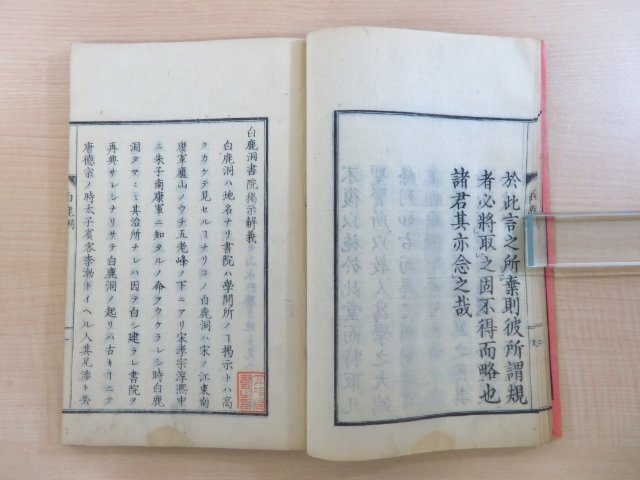 於此言之所棄則彼所謂規
者必將取之固不得而略也
諸君其亦念之哉
白鹿洞書院掲示解義
白鹿洞ハ地名ナリ書院ハ學問所ノヿ掲示トハ高
クカケテ見セルヿナリコノ白鹿洞ハ宋ノ江東南
康軍廬山ノウチ五老峰ノ下ニアリ宋孝宗淳熙中
ニ朱子南康軍ニ知タルノ命ヲウケラレシ時白鹿
洞タマ〳〵其治所ナレハ因テ白シ建ラレ書院ヲ
再興サレシナリサテ白鹿洞ノ起リハ古キヿニテ
唐德宗ノ時太子賓客李渤トイヘル人其兄渉ト共
白鹿洞